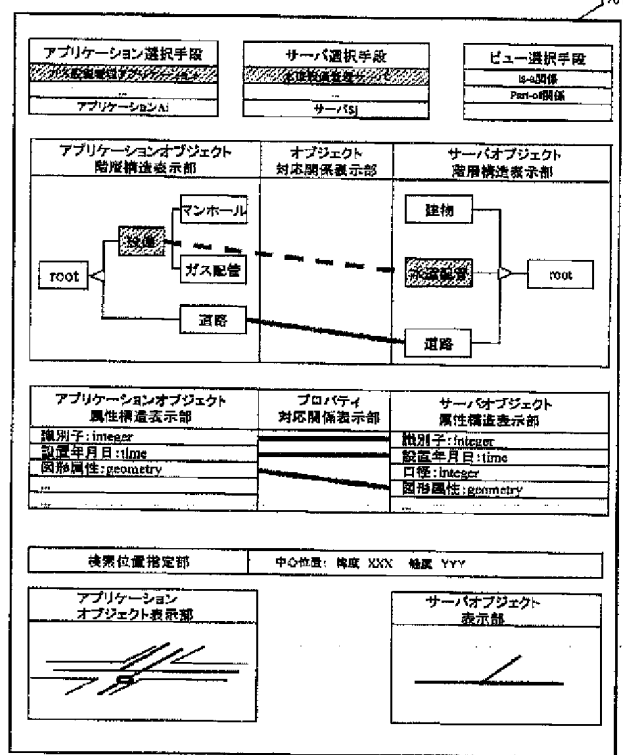 アプリケーション選択手段
ガス配管管理アプリケーション
...
アプリケーションAi
サーバ選択手段
水道配管管理サーバ
...
サーバSj
ビュー選択手段
is-a関係
Part-of関係
アプリケーションオブジェクト
階層構造表示部
オブジェクト
対応関係表示部
サーバオブジェクト
階層構造表示部
マンホール
設備
root
ガス配管
道路
建物
水道配管
root
道路
アプリケーションオブジェクト
属性構造表示部
プロパティ
対応関係表示部
サーバオブジェクト
属性構造表示部
識別子:integer
設置年月日:time
図形属性:geometry
...
...
識別子:integer
設置年月日:time
口径:integer
図形属性:geometry
...
検索位置指定部
中心位置: 緯度 XXX 経度 YYY
アプリケーション
オブジェクト表示部
サーバオブジェクト
表示部